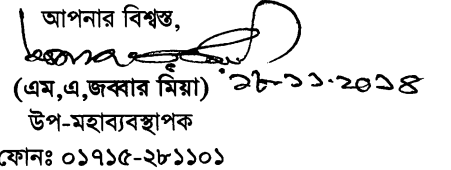 আপনার বিশ্বস্ত,
(এম,এ,জব্বার মিয়া) ২৮-১১-২০১৪
উপ-মহাব্যবস্থাপক
ফোনঃ ০১৭১৫-২৮১১০১